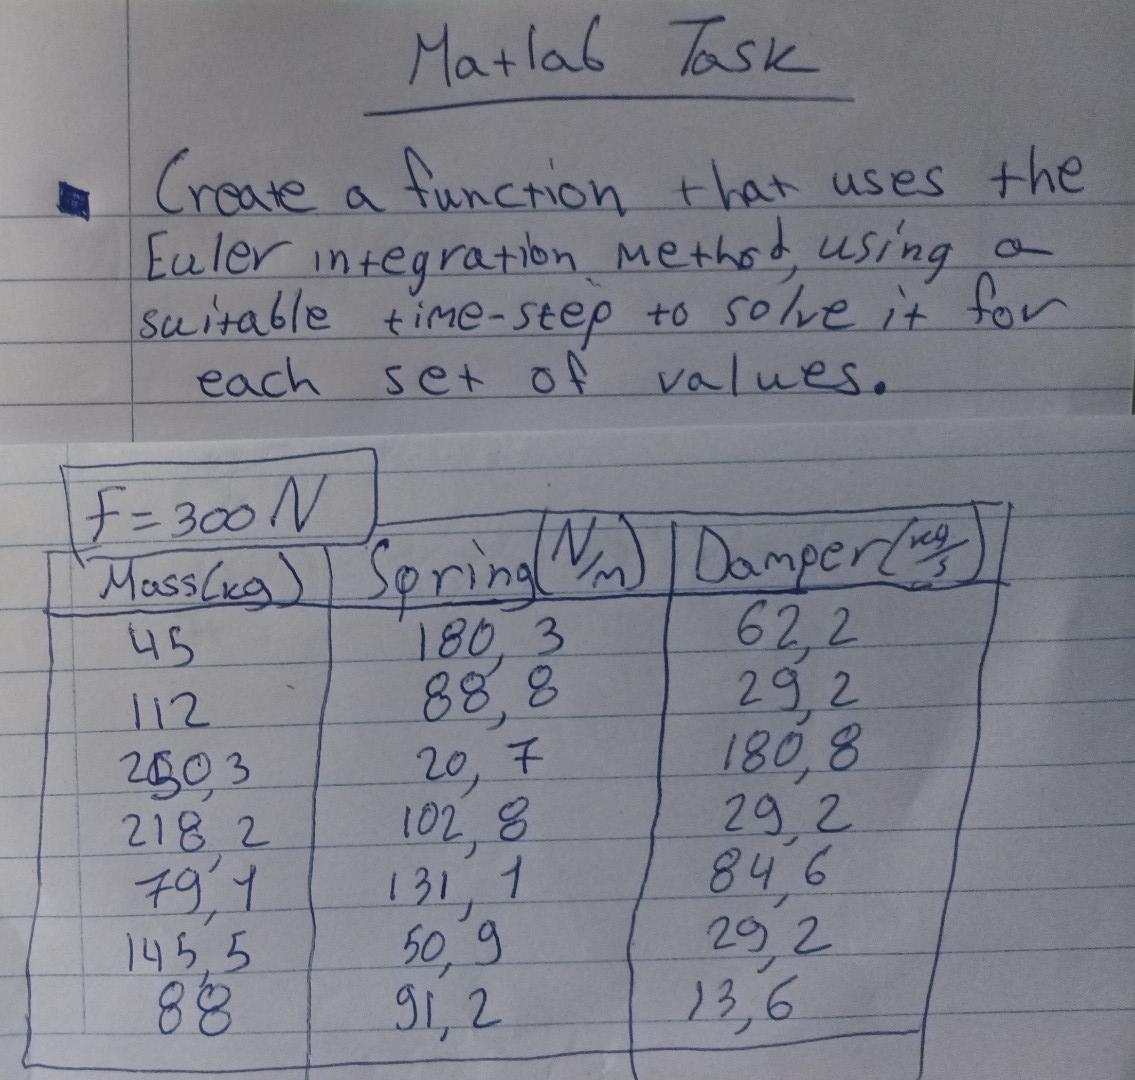 Matlab Task
Create a function that uses the
Euler integration method, using a
suitable time-step to solve it for
each set of values.
F=300N
Mass(kg) Spring(N/m) Damper(kg/s)
45 180,3 62,2
112 88,8 29,2
250,3 20,7 180,8
218,2 102,8 29,2
79,1 131,1 84,6
145,5 50,9 29,2
88 91,2 13,6